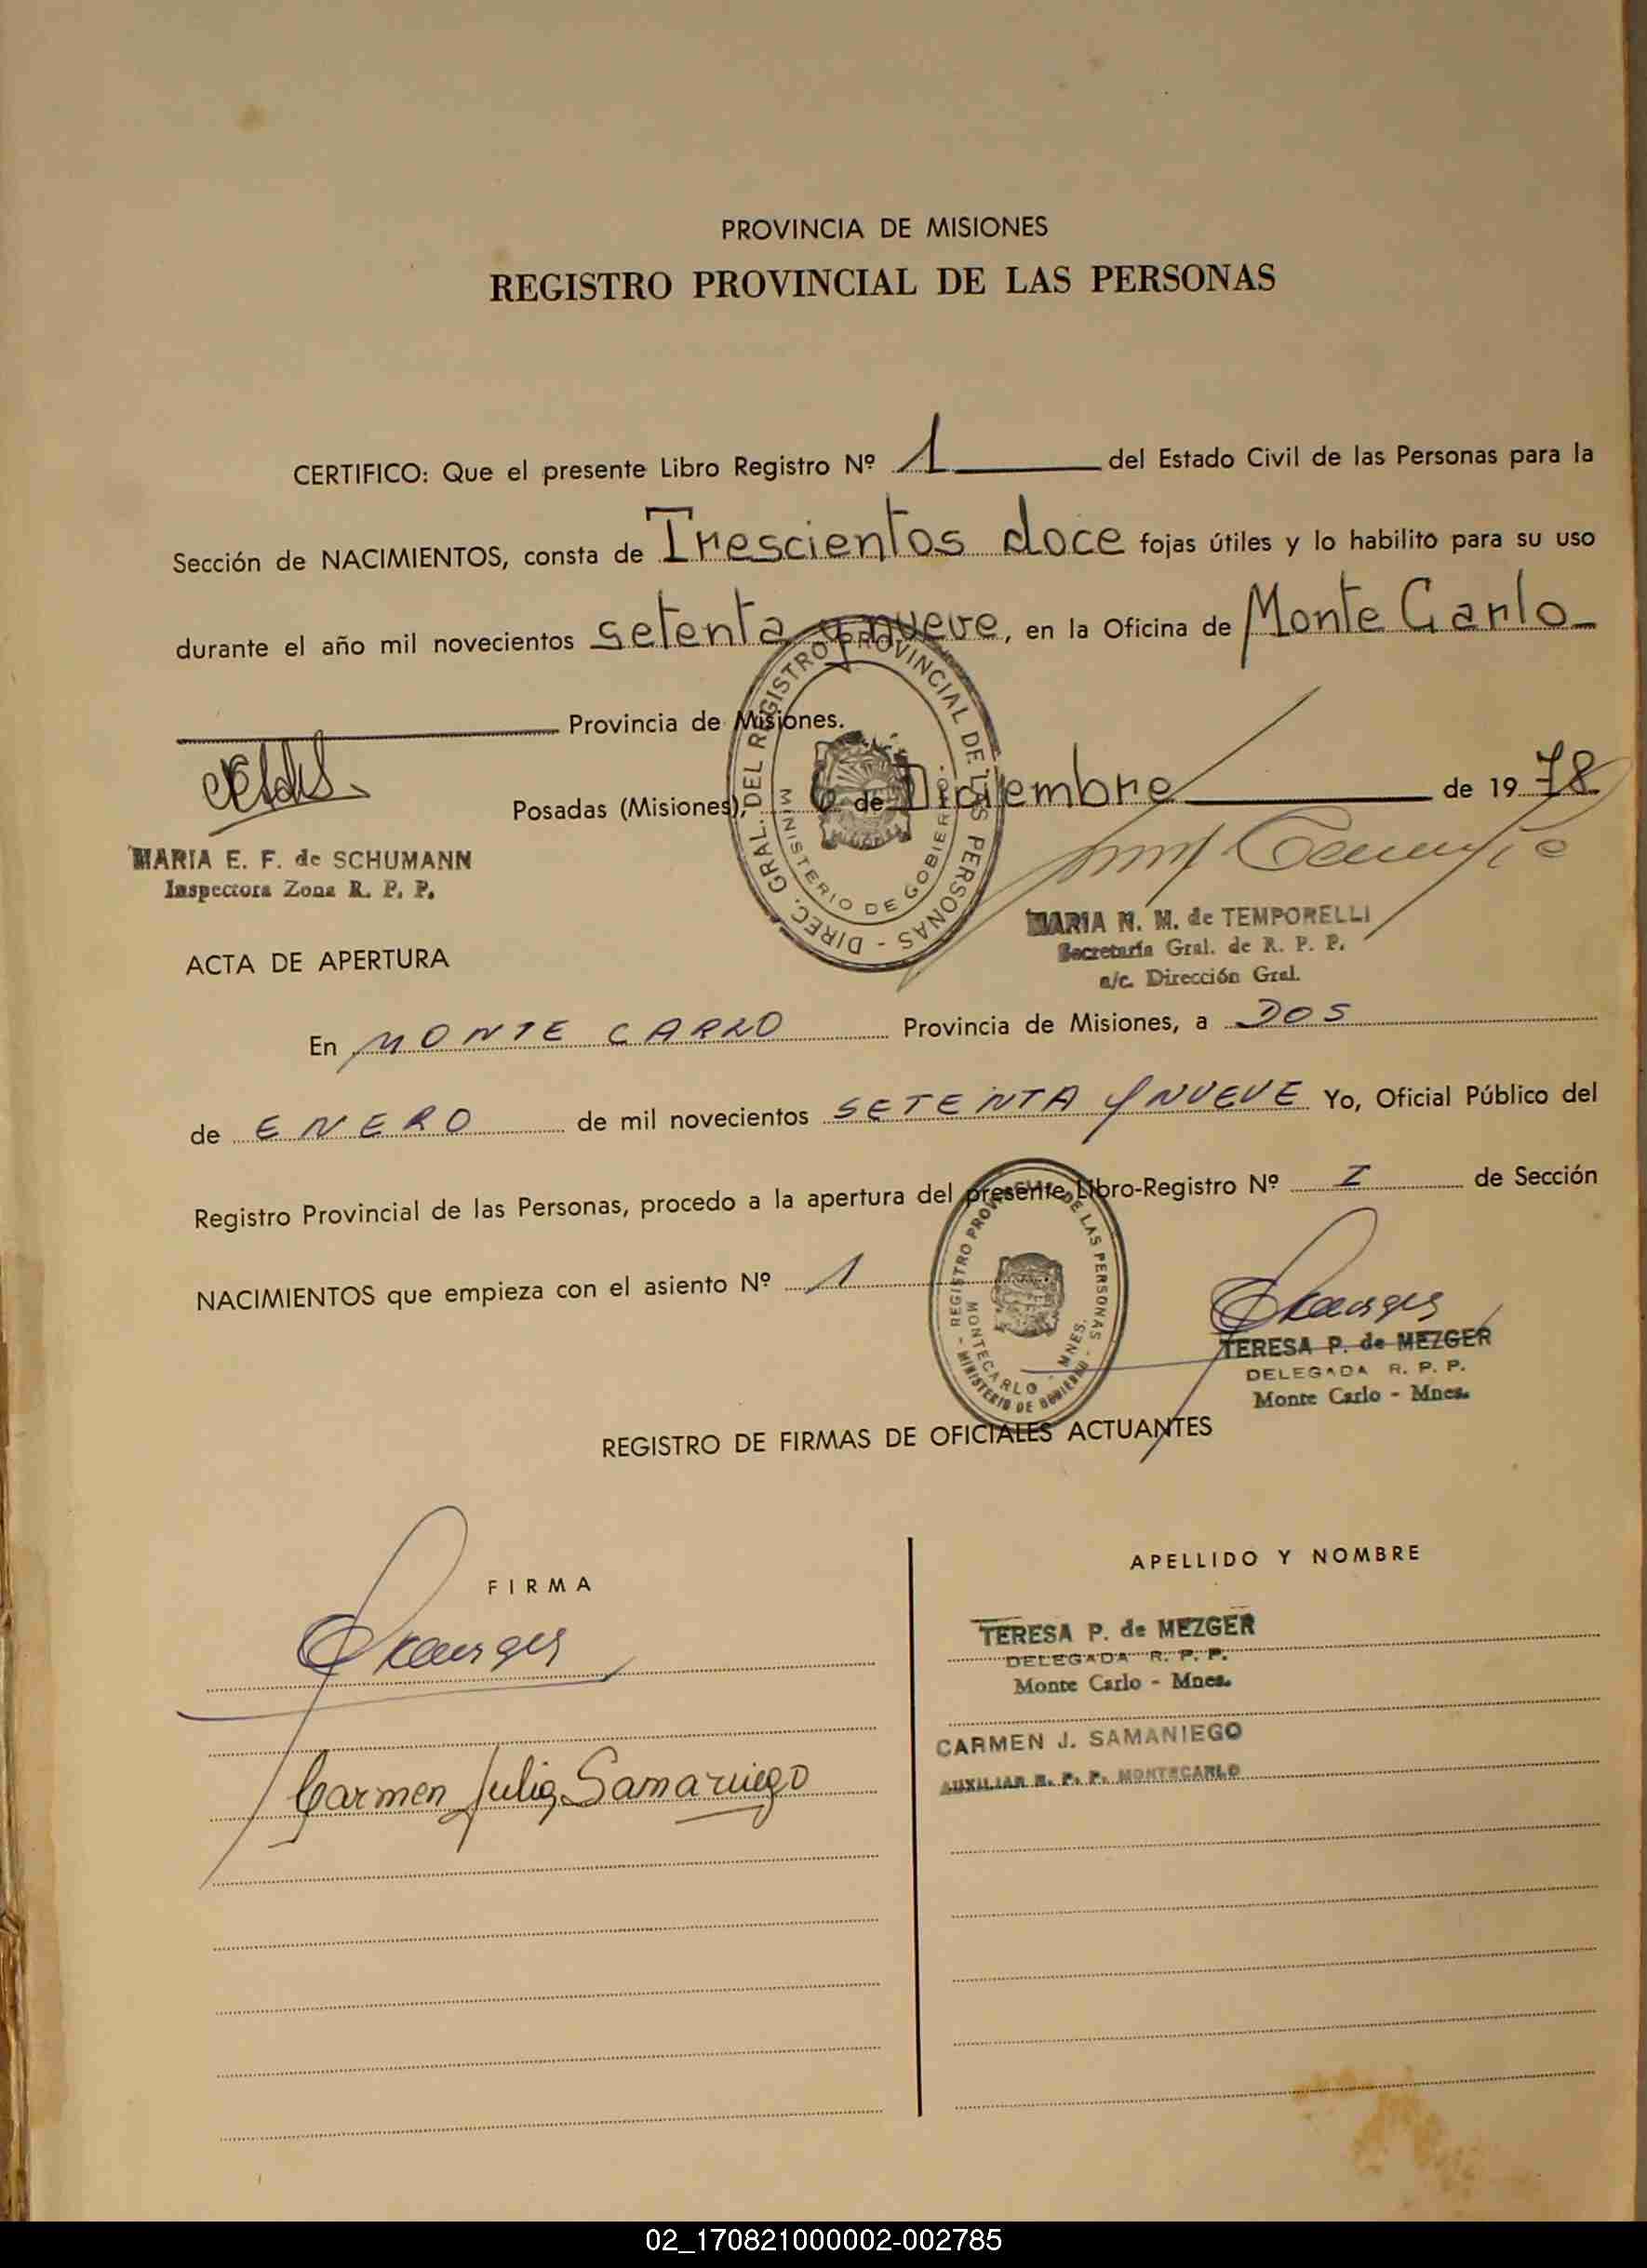 PROVINCIA DE MISIONES
REGISTRO PROVINCIAL DE LAS PERSONAS
CERTIFICO: Que el presente Libro Registro Nº 1 del Estado Civil de las Personas para la
Sección de NACIMIENTOS, consta de Trescientos doce fojas útiles y lo habilito para su uso
durante el año mil novecientos setenta y nueve, en la Oficina de Monte Carlo
Provincia de Misiones.
Posadas (Misiones), de Diciembre de 1978
DIREC. GRAL. DEL REGISTRO PROVINCIAL DE LAS PERSONAS -
MINISTERIO DE GOBIERNO
MARIA E. F. de SCHUMANN
Inspectora Zona R. P. P.
MARIA N. M. de TEMPORELLI
Secretaría Gral. de R. P. P.
a/c. Dirección Gral.
ACTA DE APERTURA
En MONTE CARLO Provincia de Misiones, a DOS
de ENERO de mil novecientos SETENTA Y NUEVE Yo, Oficial Público del
Registro Provincial de las Personas, procedo a la apertura del presente Libro-Registro Nº I de Sección
NACIMIENTOS que empieza con el asiento Nº 1
- REGISTRO PROVINCIAL DE LAS PERSONAS -
MINISTERIO DE GOBIERNO
MONTECARLO - MNES.
TERESA P. de MEZGER
DELEGADA R. P. P.
Monte Carlo - Mnes.
REGISTRO DE FIRMAS DE OFICIALES ACTUANTES
FIRMA
APELLIDO Y NOMBRE
TERESA P. de MEZGER
DELEGADA R. P. P.
Monte Carlo - Mnes.
Carmen Julia Samaniego
CARMEN J. SAMANIEGO
AUXILIAR R. P. P. MONTECARLO
02_170821000002-002785